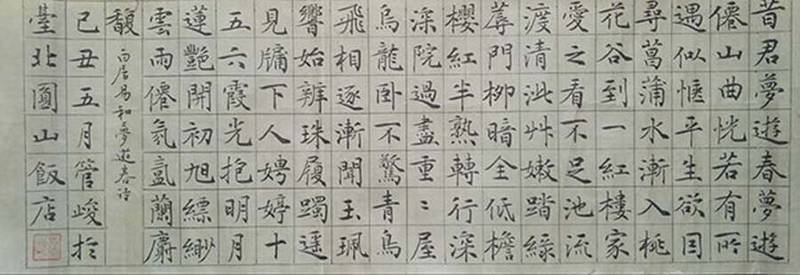 昔君夢遊春夢遊
僊山曲恍若有所
遇似愜平生欲因
尋菖蒲水漸入桃
花谷到一紅樓家
愛之看不足池流
渡清泚艸嫩踏綠
蓐門柳暗全低檐
櫻紅半熟轉行深
深院過盡重〻屋
烏龍卧不驚青鳥
飛相逐漸聞玉珮
響始辨珠履躅遥
見牖下人娉婷十
五六霞光抱明月
蓮豔開初旭縹緲
雲雨僊氛氳蘭麝
馥
白居易和夢遊春詩
己丑五月管峻於
臺北圓山飯店